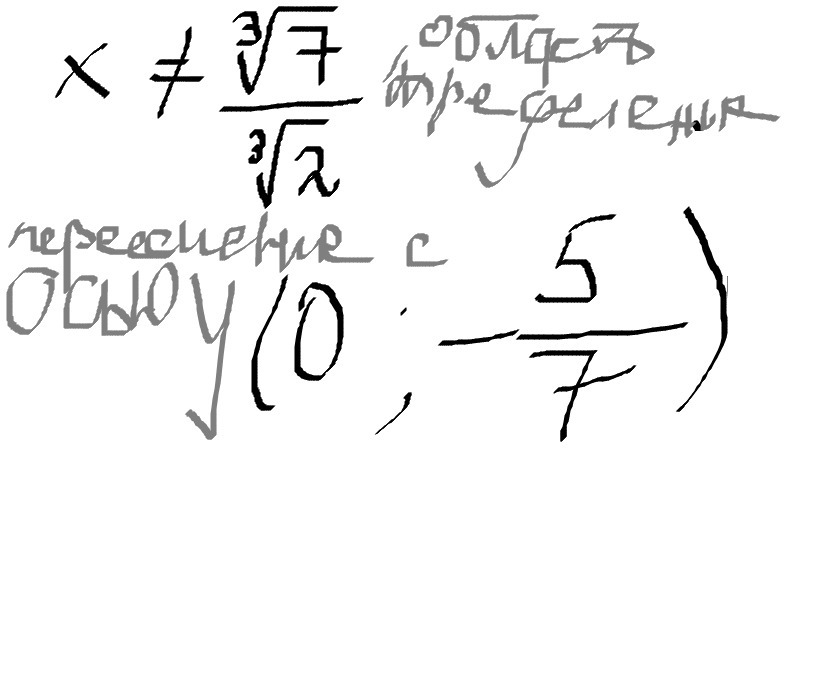 x ≠ ∛7 / ∛2 область
определения
пересичения с
осью у (0 ; -5/7)